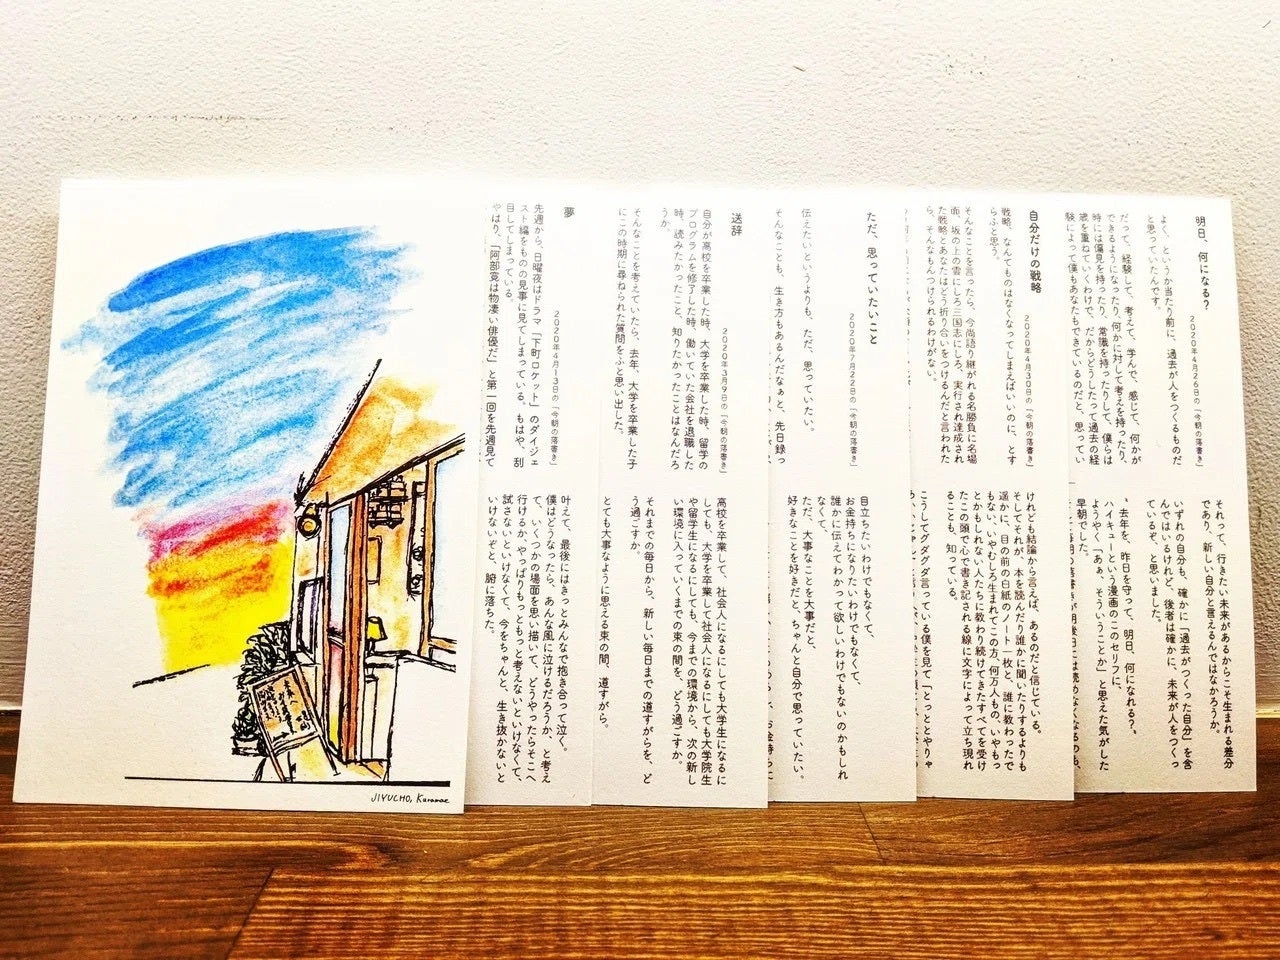 明日、何になる？
2020年4月26日の「今朝の落書き」
よく、というか当たり前に、過去が人をつくるものだ
と思っていたんです。
だって、経験して、考えて、学んで、感じて、何かが
できるようになったり、何かに対して考えを持ったり、
時には偏見を持ったり、常識を持ったりして、僕らは
歳を重ねていくわけで、だからどうしたって過去の経
験によって僕もあなたもできているのだと、思ってい
それって、行きたい未来があるからこそ生まれる差分
であり、新しい自分と言えるんではなかろうか。
いずれの自分も、確かに「過去がつくった自分」を含
んではいるけれど、後者は確かに、未来が人をつくっ
ているぞ、と思いました。
〝去年を、昨日を守って、明日、何になれる？〟
ハイキューという漫画のこのセリフに、
ようやく「あぁ、そういうことか」と思えた気がした
早朝でした。
自分だけの戦略
2020年4月30日の「今朝の落書き」
戦略、なんてものはなくなってしまえばいいのに、とす
らふと思う。
そんなことを言ったら、今尚語り継がれる名勝負に名場
面、坂の上の雲にしろ三国志にしろ、実行され達成され
た戦略とあなたはどう折り合いをつけるんだと言われた
ら、そんなもんつけられるわけがない。
けれども結論から言えば、あるのだと信じている。
そしてそれが、本を読んだり誰かに聞いたりするよりも
遥かに、目の前の白紙のノート一枚と、誰に教わったで
もない、いやむしろ生まれてこの方何万人もの、いやもっ
とかもしれない人たちに教わり続けてきたすべてを受け
たこの頭で心で書き記される線に文字によって立ち現れ
ることも、知っている。
こうしてグダグダ言っている僕を見て「とっととやりゃ
ただ、思っていたいこと
2020年7月22日の「今朝の落書き」
伝えたいというよりも、ただ、思っていたい。
そんなことも、生き方もあるんだなぁと、先日録っ
目立ちたいわけでもなくて、
お金持ちになりたいわけでもなくて、
誰かに伝えてわかって欲しいわけでもないのかもしれ
なくて、
ただ、大事なことを大事だと、
好きなことを好きだと、ちゃんと自分で思っていたい。
送辞
2020年3月9日の「今朝の落書き」
自分が高校を卒業した時、大学を卒業した時、留学の
プログラムを修了した時、働いていた会社を退職した
時、読みたかったこと、知りたかったことはなんだろ
うか。
そんなことを考えていたら、去年、大学を卒業した子
にこの時期に尋ねられた質問をふと思い出した。
高校を卒業して、社会人になるにしても大学生になるに
しても、大学を卒業して社会人になるにしても大学院生
や留学生になるにしても、今までの環境から、次の新し
い環境に入っていくまでの束の間を、どう過ごすか。
それまでの毎日から、新しい毎日までの道すがらを、ど
う過ごすか。
とても大事なように思える束の間、道すがら。
夢
2020年4月13日の「今朝の落書き」
先週から、日曜夜はドラマ「下町ロケット」のダイジェ
スト編をものの見事に見てしまっている。もはや、刮
目してしまっている。
やはり、「阿部寛は物凄い俳優だ」と第一回を先週見て
叶えて、最後にはきっとみんなで抱き合って泣く。
僕はどうなったら、あんな風に泣けるだろうか、と考え
て、いくつかの場面を思い描いて、どうやったらそこへ
行けるか、やっぱりもっともっと考えないといけなくて、
試さないといけなくて、今をちゃんと、生き抜かないと
いけないぞと、腑に落ちた。
JIYUCHO, Kuramae